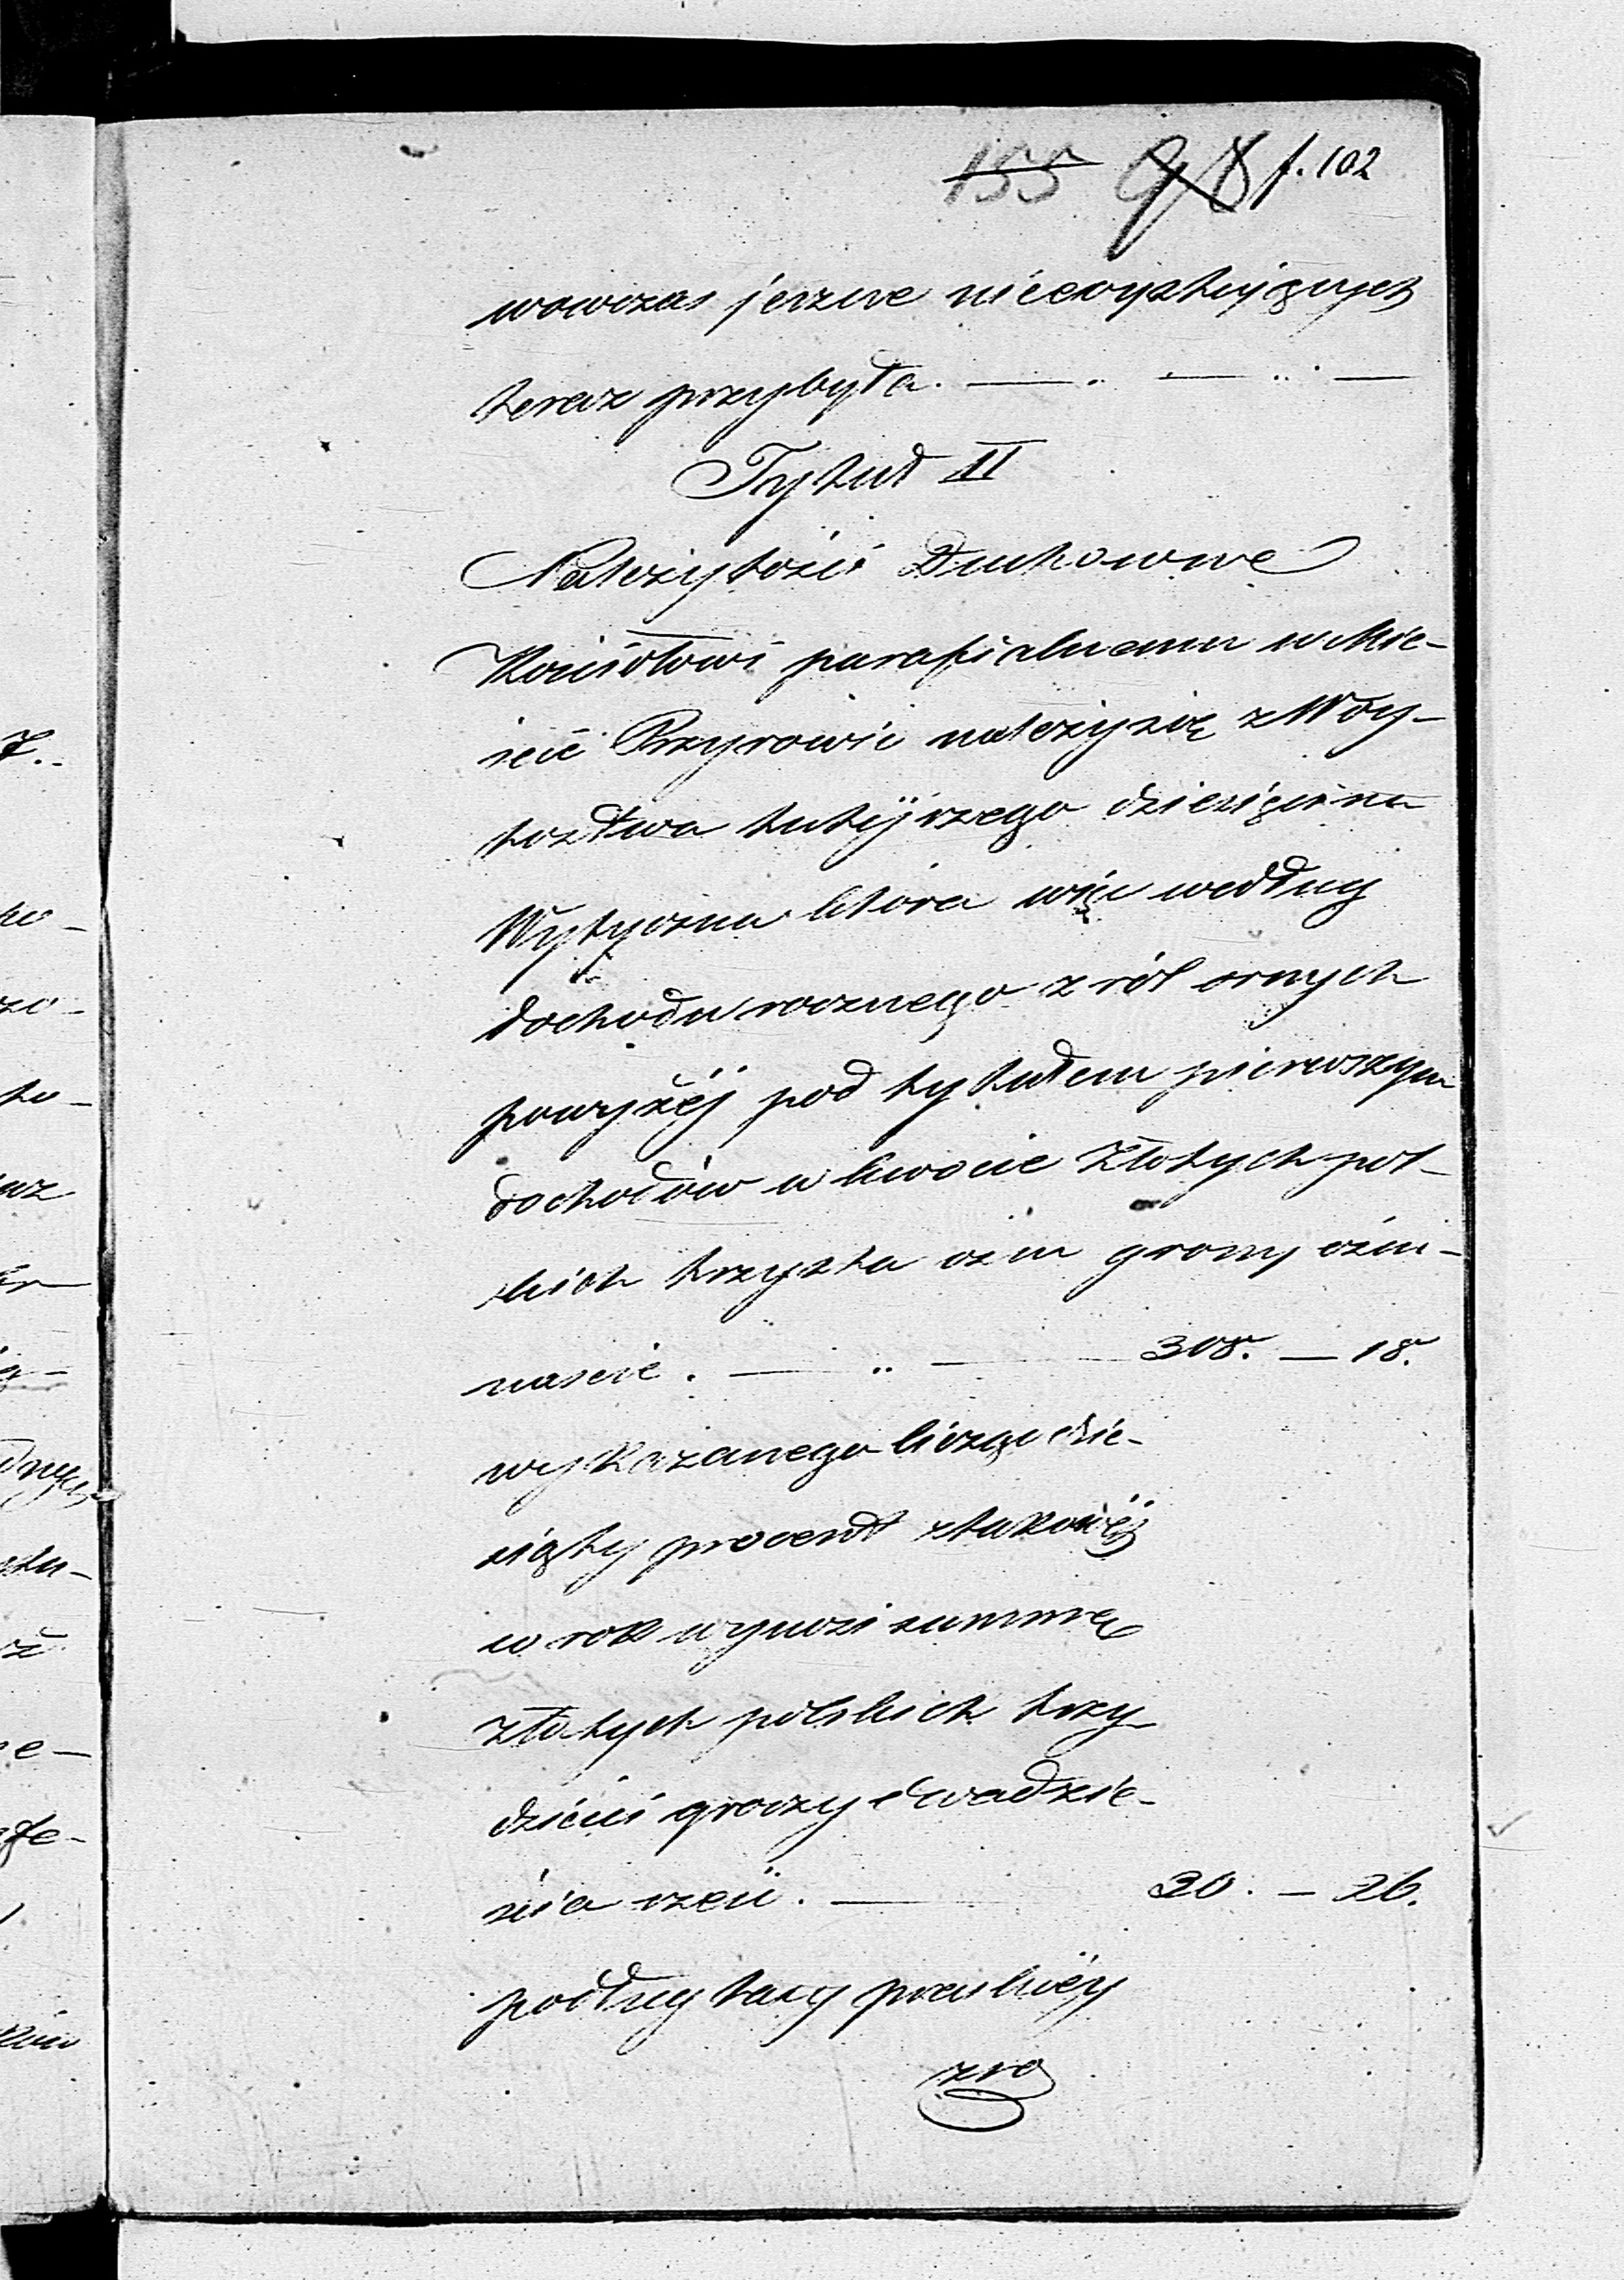 155 98 f. 102
wowczas jeszcze nieexystujących
teraz przybyła. — .. — .. —
Tytuł II
Należytości Duchowne
Kościołowi parafialnemu w Mie-
ście Przyrowie należy się z Woy-
tostwa tutéyszego dziesięcina
Wytyczna która więc według
dochodu rocznego z ról ornych
powyżéj pod tytułem pierwszym
dochodów w kwocie Złotych pol-
skich trzysta ośm groszy ośm-
naście . — .. — 308. — 18.
wykazanego licząc dzie-
siąty procent
w rok wynosi summę
złotych polskich trzy-
dzieści groszy dwadzie-
ścia sześć . — 30. — 26.
podług taxy pruskiéy